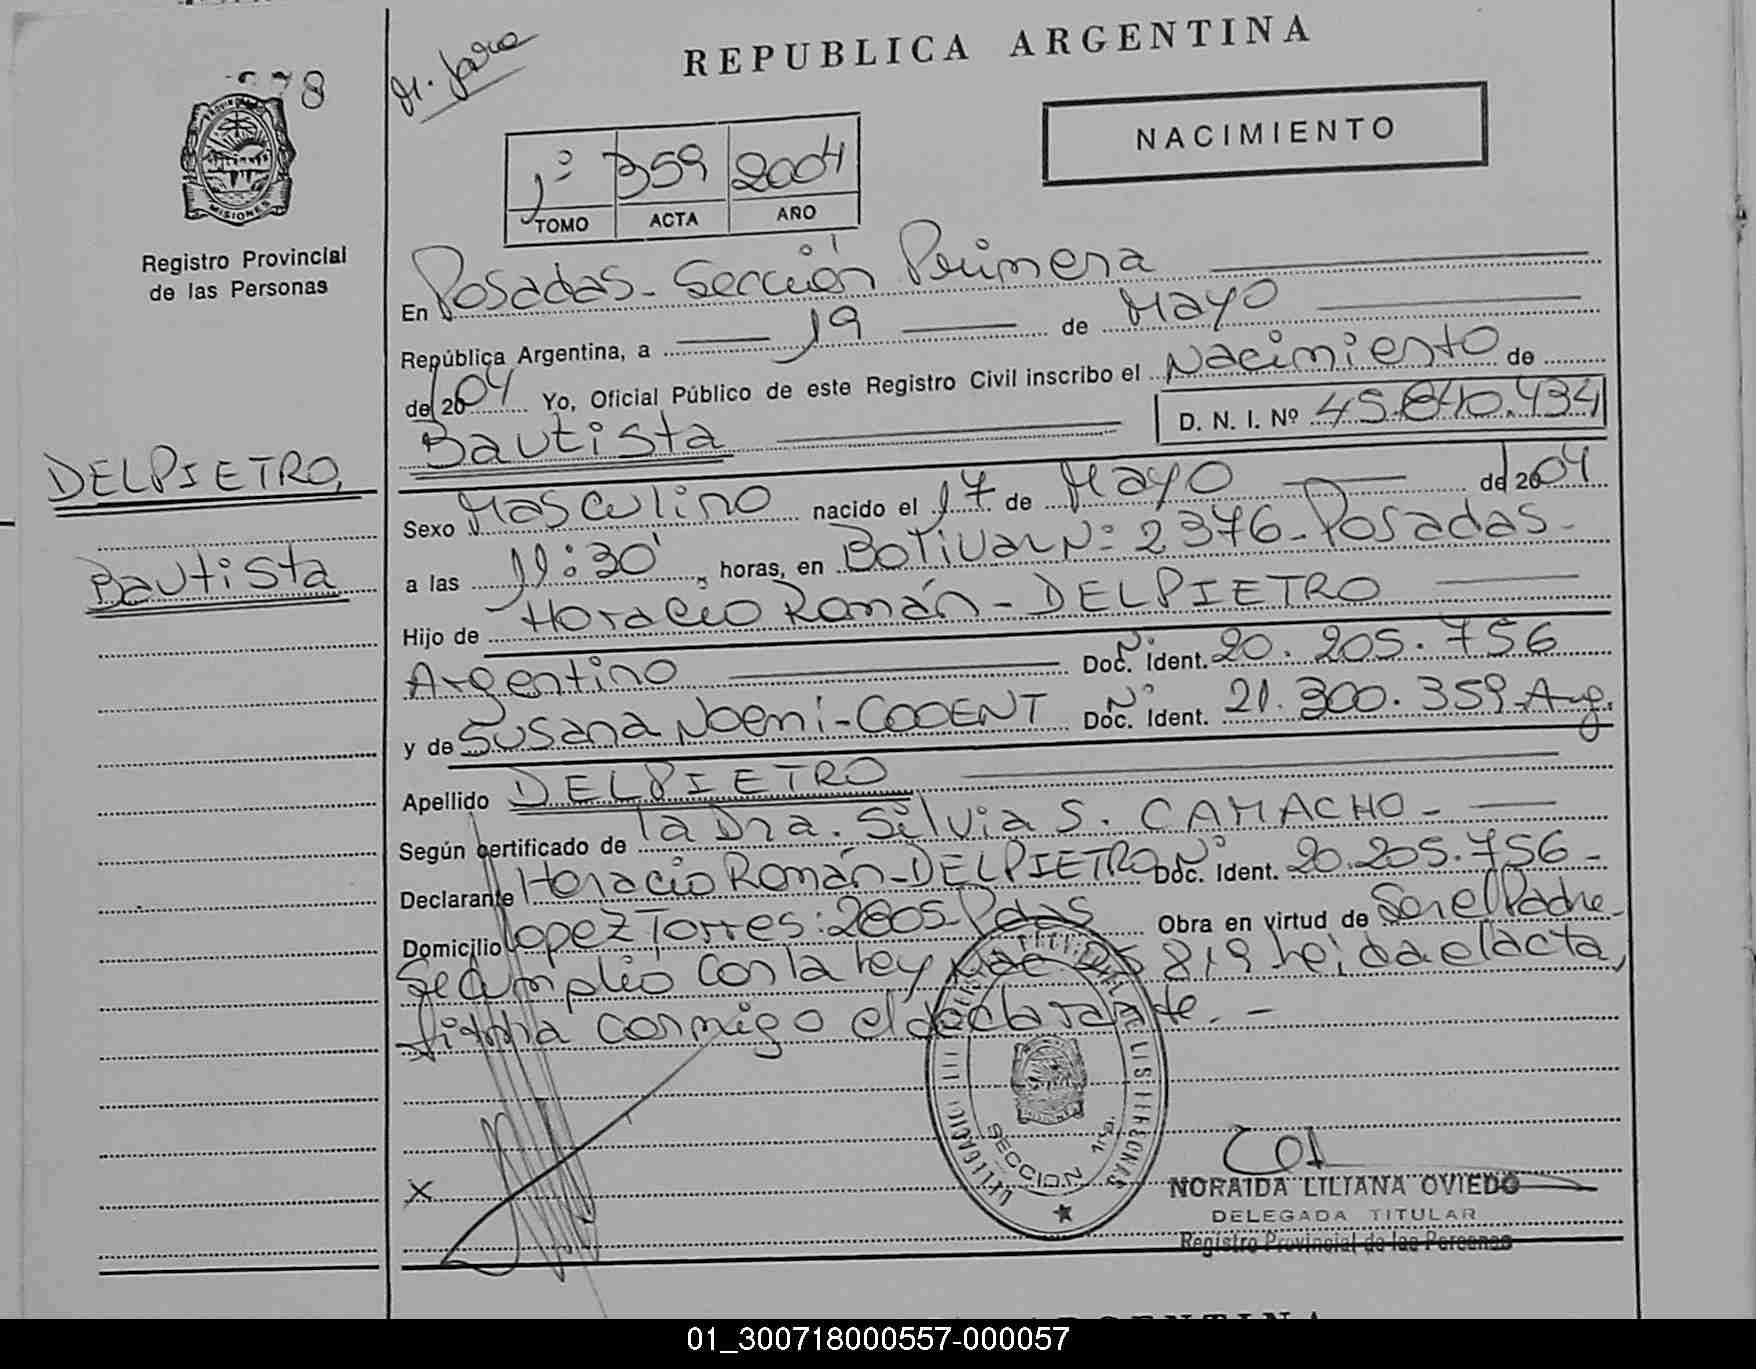 REPUBLICA ARGENTINA
NACIMIENTO
1º 359 2004
TOMO ACTA AÑO
MISIONES
Registro Provincial
de las Personas
En Posadas - Sección Primera
República Argentina, a 19 de Mayo
de 2004 Yo, Oficial Público de este Registro Civil inscribo el Nacimiento de
Bautista D. N. I. Nº 45.840.434
DELPIETRO,
Bautista
Sexo Masculino nacido el 17 de Mayo de 2004
a las 11:30' horas, en Bolivar Nº 2376 - Posadas -
Hijo de Horacio Román - DELPIETRO
Argentino Nº Doc. Ident. 20.205.756
y de Susana Noemi - COOENT Nº Doc. Ident. 21.300.359 - Arg.
Apellido DELPIETRO
Según certificado de la Dra. Silvia S. CAMACHO -
Declarante Horacio Román - DELPIETRO Nº Doc. Ident. 20.205.756 -
Domicilio Lopez Torres: 2605 - Pdas Obra en virtud de Ser el Padre -
Se cumplió con la ley 25819 leida el acta,
firma conmigo el declarante. -
X
SECCION 1ra.
NORAIDA LILIANA OVIEDO
DELEGADA TITULAR
Registro Provincial de las Personas
01_300718000557-000057